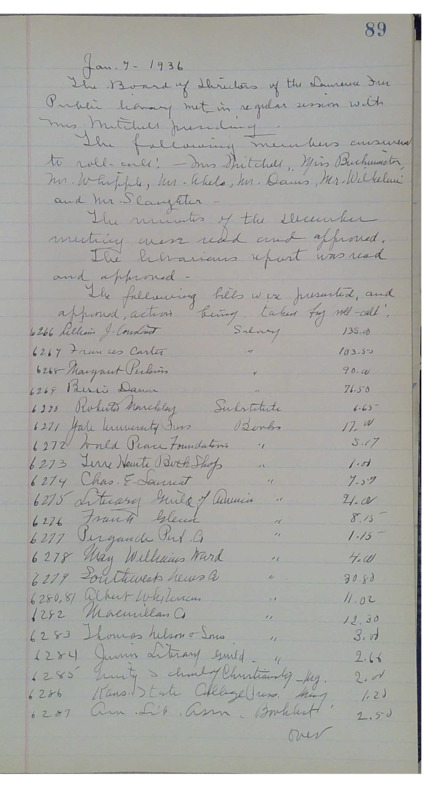 89
Jan. 7 - 1936
The Board of Directors of the Lawrence Free
Public Library met in regular session with
Mrs. Mitchell presiding.
The following members answered
to roll-call: - Mrs Mitchell, Miss
Mr. Whipple, Mr. Mr. Davis, Mr.
and Mr. Slaughter -
The minutes of the December
meeting were read and approved.
The librarians report was read
and approved -
The following bills were presented, and
approved, action being taken by roll-call.
6266 J. Salary 135.00
6267 Frances Carter " 103.50
6268 Margaret Perkins " 90.00
6269 " 76.50
6270 Roberta Substitute 6.65
6271 Yale University Press Books 17.00
6272 World Peace Foundation " 5.17
6273 Terre Haute Book Shop "
6274 Chas. E. Lauriat " 7.59
6275 Literary Guild of America " 21.00
6276 Frank Glenn " 8.15
6277 Pergande Pub. Co " 1.15
6278 May Williams Ward " 4.00
6279 Southwest News Co " 30.80
6280,81 Albert Whitman " 11.02
6282 Macmillan Co " 12.30
6283 Thomas Nelson & Sons " 3.00
6284 Junior Literary Guild - " 2.66
6285 Unity School of Christianity - Mag. 2.00
6286 Kans. State College Press. 1.20
6287 Am. Lib. Assn. Booklist 2.50
over